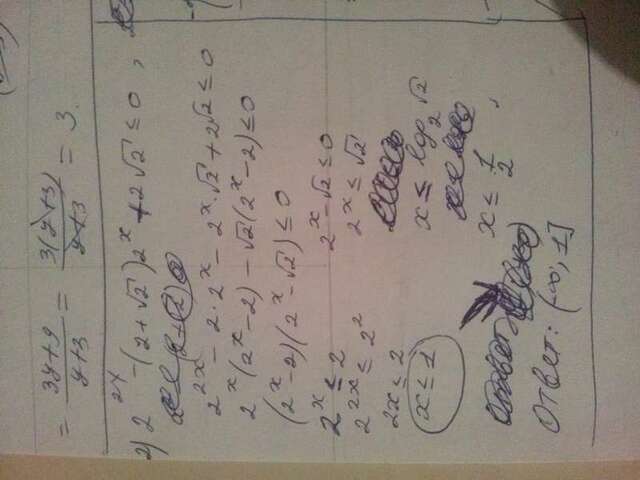 = 3y+9 / y+3 = 3(y+3) / y+3 = 3.
2) 2^2x -(2+√2)2^x +2√2 ≤ 0,
2^2x - 2·2^x - 2^x·√2 + 2√2 ≤ 0
2^x(2^x-2) - √2(2^x-2) ≤ 0
(2^x-2)(2^x-√2) ≤ 0
2^x ≤ 2 2^x-√2 ≤ 0
2^2x ≤ 2^2 2^x ≤ √2
2x ≤ 2
x ≤ 1 x ≤ log_2 √2
x ≤ 1/2,
Ответ: (-∞, 1]